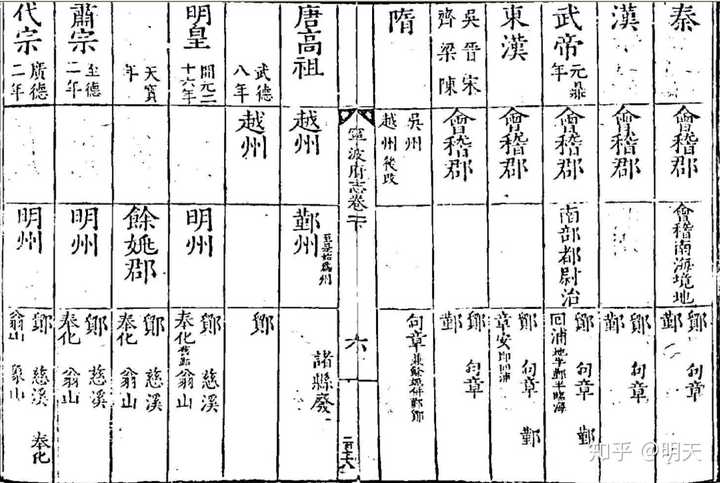 秦
會稽郡
會稽南海境地
鄮 句章
鄞
漢
會稽郡
鄮 句章
鄞
武帝 元鼎年
會稽郡
南部都尉治
鄮 句章 鄞
回浦 地半鄞半臨海
東漢
會稽郡
鄮 句章 鄞
章安 即回浦
吳晉宋
齊梁陳
會稽郡
鄮 句章
鄞
隋
吳州
越州後改
句章
寧波府志卷下
六
唐高祖
越州
鄞州 至是始為州
諸縣廢
武德八年
越州
鄮
明皇 開元二十六年
明州
鄮 慈溪
奉化 翁山
天寶年
餘姚郡
鄮 慈溪
奉化 翁山
肅宗 至德二年
明州
鄮 慈溪
奉化 翁山
代宗 廣德二年
明州
鄮 慈溪 奉化
翁山 象山
知乎 @明天